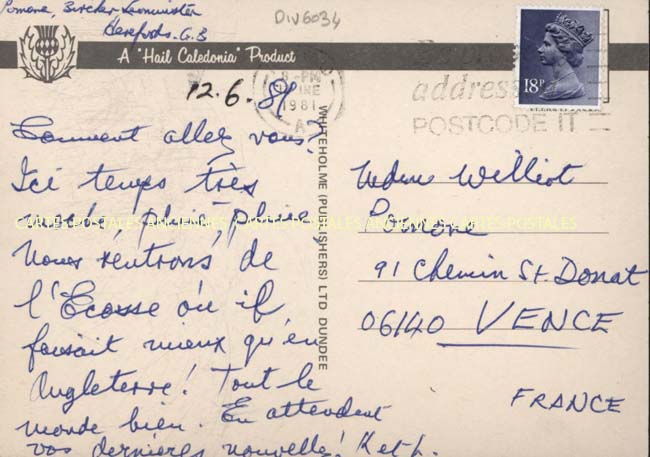 Pomone, Bircher Leominster
Herefords. G.B
DIV6034
A "Hail Caledonia" Product
8-PM
JUNE
1981
A
18P
address
POSTCODE IT
12.6.81
Comment allez vous?
Ici temps très
pluie, pluie,
Nous rentrons de
l'Ecosse où il
faisait mieux qu'en
Angleterre! Tout le
monde bien. En attendent
vos dernieres nouvelle!
WHITEHOLME (PUBLISHERS) LTD DUNDEE
Williot
Pomone
91 Chemin St. Donat
06140 VENCE
FRANCE
CARTES POSTALES ANCIENNES CARTES POSTALES